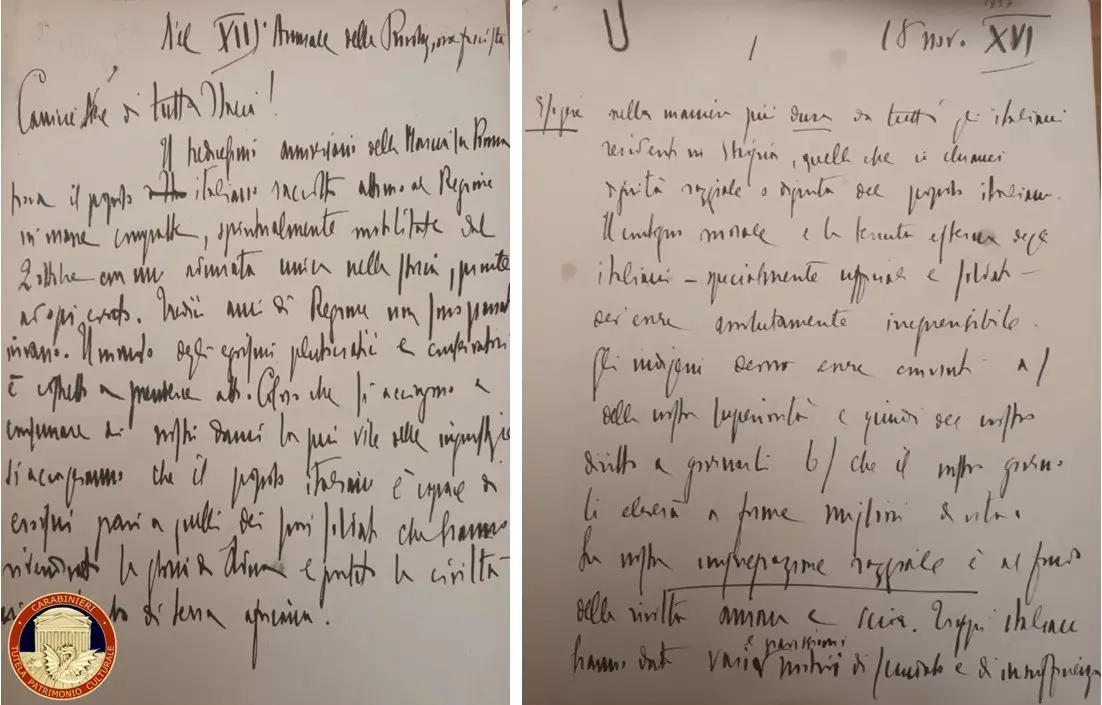 Nel XIII° Annuale della Rivoluz.ne fascista
Camicie Nere di tutta Italia!
Il tredicesimo anniversario della Marcia su Roma
trova il popolo italiano raccolto attorno al Regime
in massa compatta, spiritualmente mobilitato dal
2 ottobre con una adunata unica nella storia, pronto
ad ogni evento. Tredici anni di Regime non sono passati
invano. Il mondo degli egoismi plutocratici e conservatori
è costretto a prenderne atto. Coloro che si accingono a
consumare ai nostri danni la più vile delle ingiustizie
si accorgeranno che il popolo italiano è capace di
eroismi pari a quelli dei suoi soldati che hanno
rivendicato la gloria di Adua e portato la civiltà
di terra africana.
CARABINIERI
TUTELA PATRIMONIO CULTURALE
1937
1
18 nov. XVI
Esigere nella maniera più dura da tutti gli italiani
residenti in Etiopia, quella che si chiama
dignità razziale o dignità del popolo italiano.
Il contegno morale e la tenuta esterna degli
italiani - specialmente ufficiali e soldati -
dev'essere assolutamente irreprensibile.
Gli indigeni devono essere convinti a/
della nostra superiorità e quindi del nostro
diritto a governarli b/ che il nostro governo
li eleverà a forme migliori di vita.
La nostra impreparazione razziale è al fondo
della rivolta amara e Scioa. Troppi italiani
e parecchi
hanno dato vari motivi di scandalo e di insufficienza